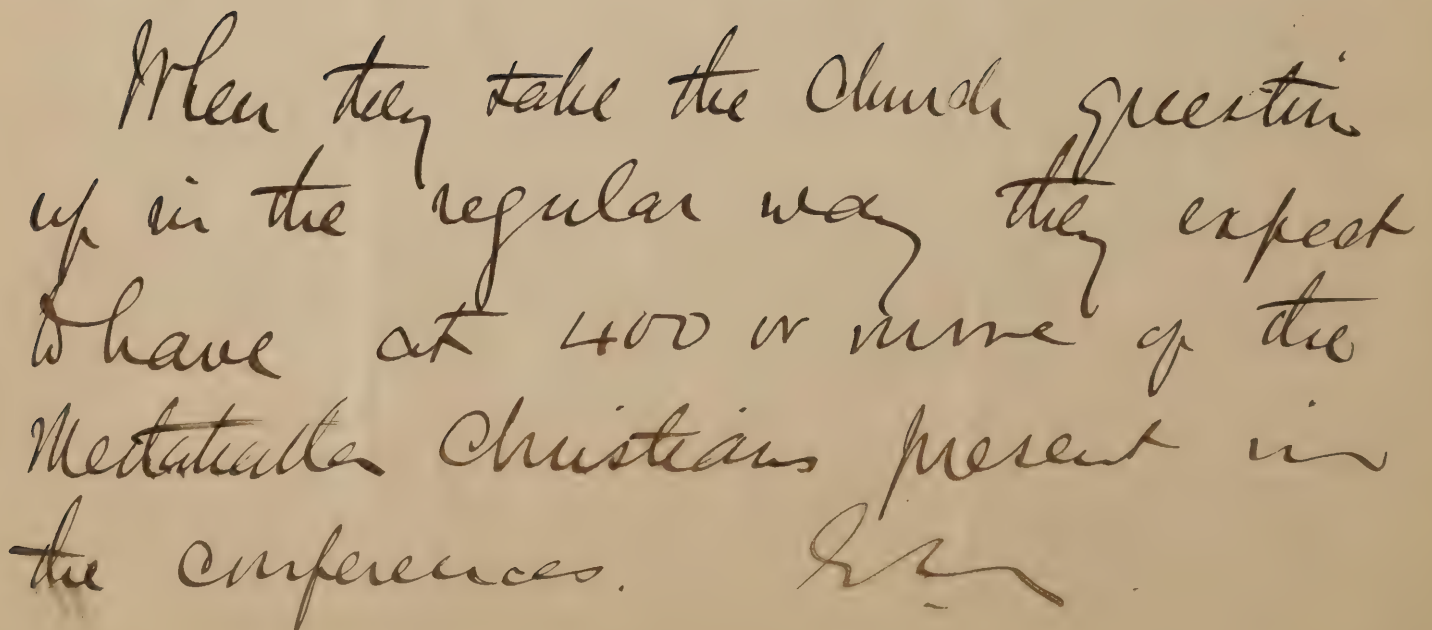 When they take the Church question
up in the regular way they expect
to have at 400 or more of the
Metlakatla Christians present in
the conferences.